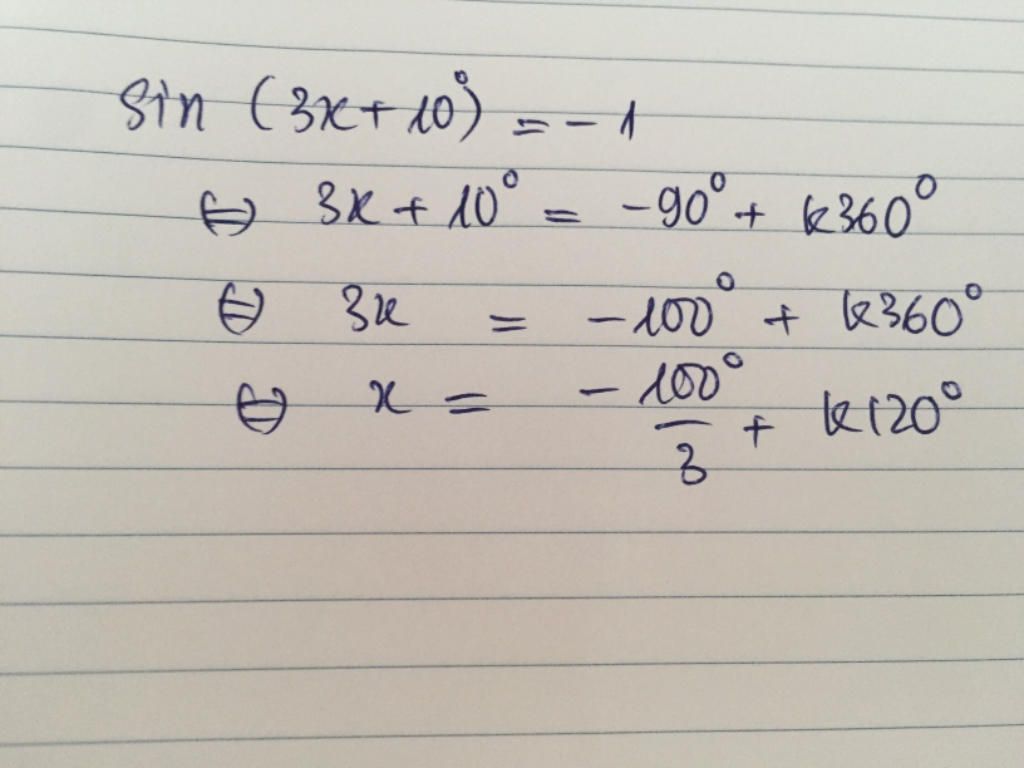 Sin (3x + 10°) = -1
⇔ 3x + 10° = -90° + k360°
⇔ 3x = -100° + k360°
⇔ x = -100°/3 + k120°